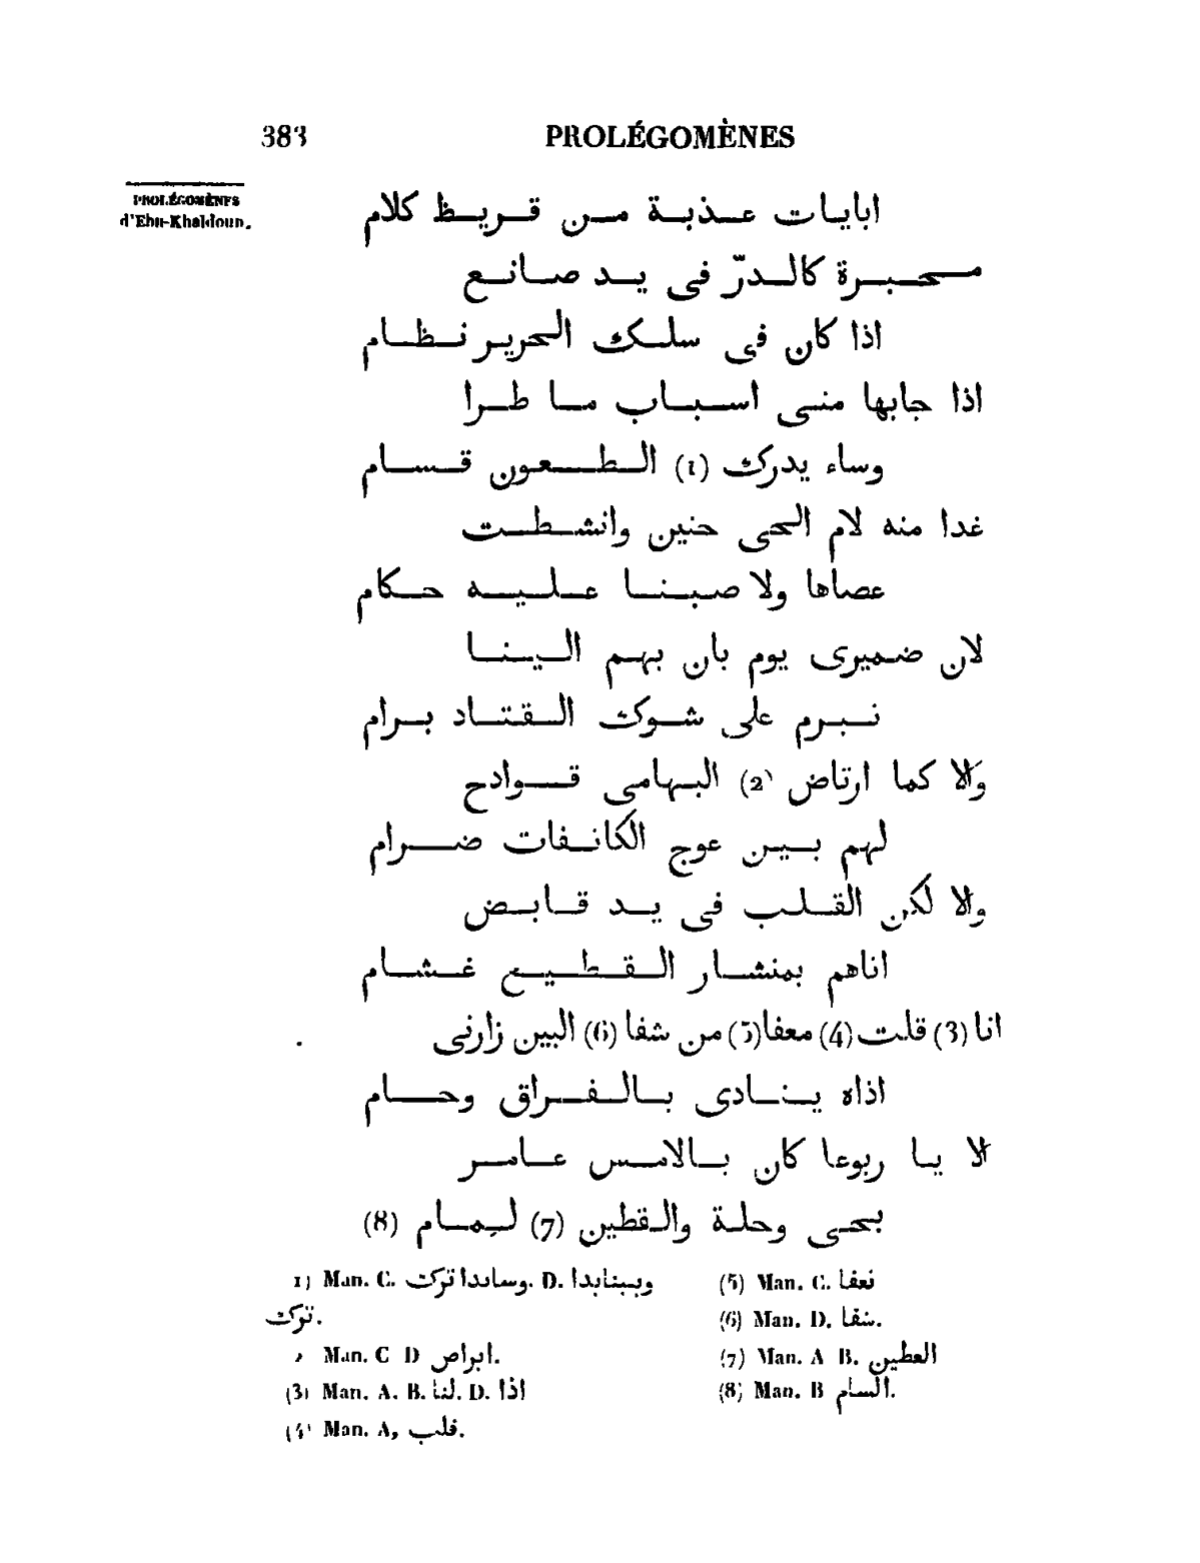 383 PROLÉGOMÈNES
PROLÉGOMÈNES
d'Ebn-Khaldoun.
ابايات عذبة من قريظ كلام
محبرة كالدرّ فى يد صانع
اذا كان فى سلك الحرير نظام
اذا جابها منى اسباب ما طرا
وساء يدرك (1) الطعون قسام
غدا منه لام الحى حنين وانشطت
عصاها ولا صبنا عليه حكام
لان ضميرى يوم بان بهم الينا
نبرم على شوك القتاد برام
ولا كما ارتاض (2) البهامى قوادح
لهم بين عوج الكانفات ضرام
ولا لكن القلب فى يد قابض
اناهم بمنشار القطيع غشام
انا (3) قلت (4) معفا (5) من شفا (6) البين زارنى
اذاه ينادى بالفراق وحام
الا يا ربوعا كان بالامس عامر
بحى وحلة والقطين (7) لمام (8)
1) Man. C. وساىدا ترك. D. وبينابدا
ترك.
Man. C D ابراص.
(3) Man. A. B. لنا. D. اذا
(4) Man. A, قلب.
(5) Man. C. نعفا
(6) Man. D. شفا.
(7) Man. A B. العطين
(8) Man. B السام.